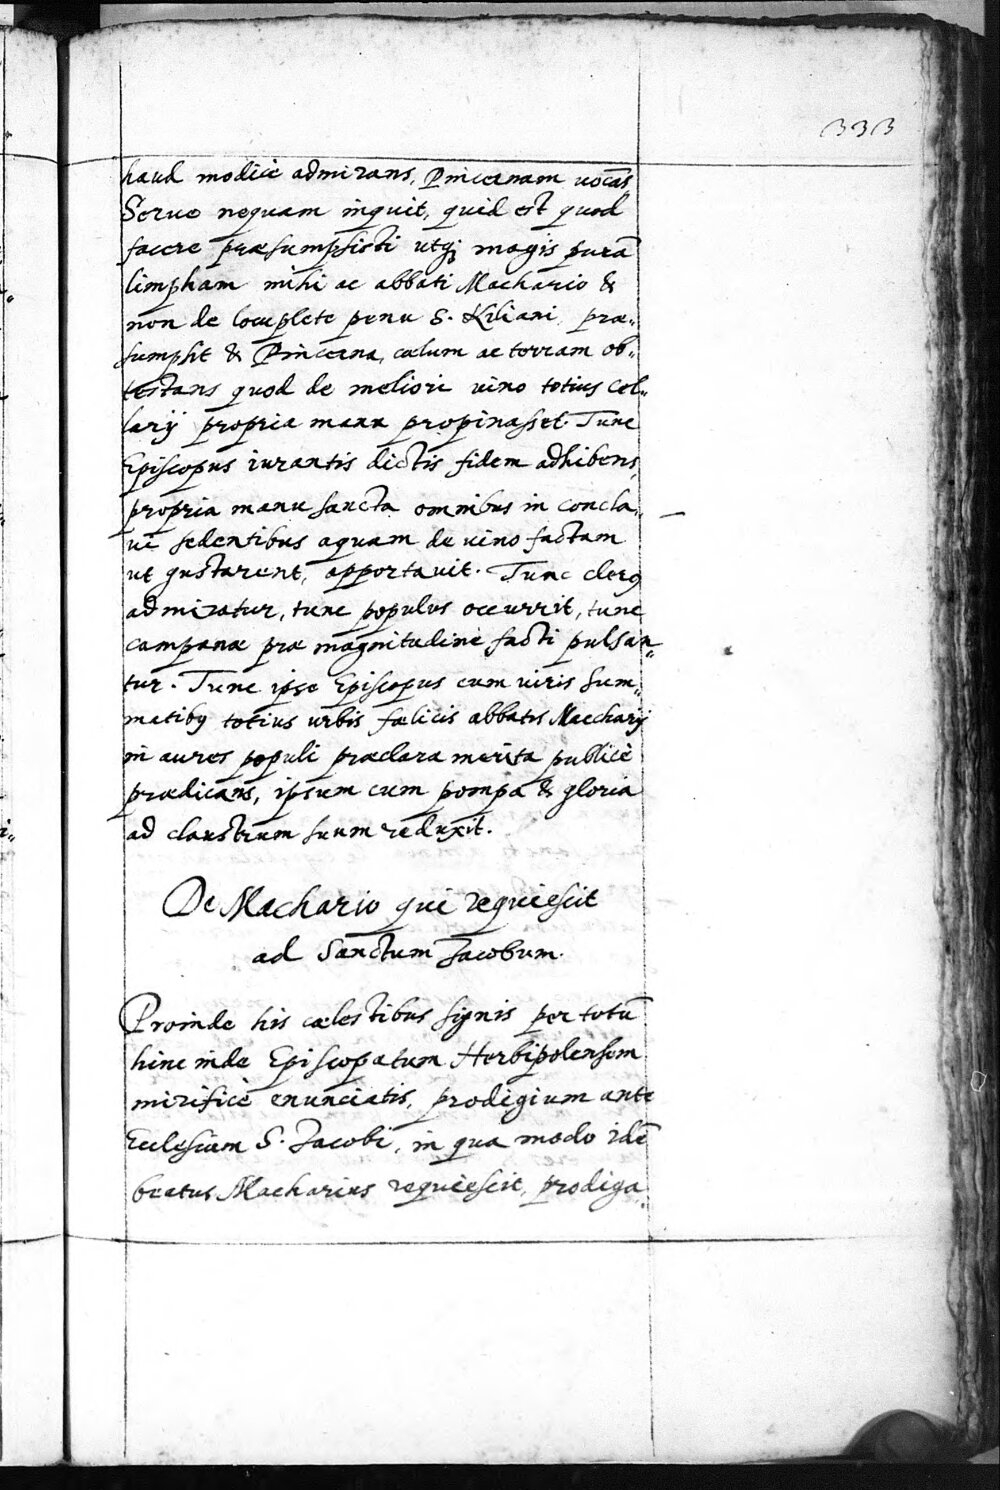 333
haud modicè admirans, Pincernam vocās,
Serve nequam inquit, quid est quod
facere præsumpsisti utq; magis purā
limpham mihi ac abbati Machario &
non de locuplete penu S. Kiliani præ„
sumpsit & Pincerna, cælum ac terram ob„
testans quod de meliori vino totius cel„
larij propria manu propinasset. Tunc
Episcopus iurantis dictis fidem adhibens,
propria manu sancta omnibus in concla„
vi sedentibus aquam de vino factam
ut gustarent, apportavit. Tunc clerq
admiratur, tunc populus occurrit, tunc
campanæ præ magnitudine facti pulsan„
tur. Tunc ipse Episcopus cum viris sum„
matibq totius urbis fœlicis abbatis Macharij
in aures populi præclara merita publicè
prædicans, ipsum cum pompa & gloria
ad claustrum suum reduxit.
De Machario qui requiescit
ad Sanctum Jacobum.
Proinde his cælestibus signis per totū
hinc inde Episcopatum Herbipolensem
mirificè enunciatis, prodigium ante
Ecclesiam S. Jacobi, in qua modo idē
beatus Macharius requiescit, prodiga„